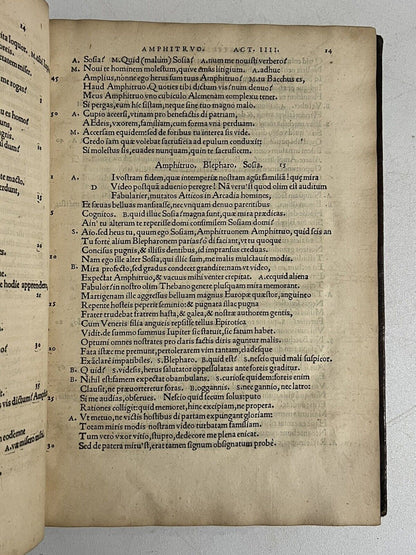 AMPHITRVO. ACT. IIII. 14
A. Sosia? M. Quid (malum) Sosia? A. num me nouisti verbero?
M. Noui te hominem molestum, quiue emis litigium. A. adhuc
45 Amplius, nonne ego herus sum tuus Amphitruo? M. tu Bacchus es,
Haud Amphitruo. Quoties tibi dictum vis? num denuo?
Meus Amphitruo vno cubiculo Alcmenam complexu tenet.
Si pergas, eum hic sistam, neque sine tuo magno malo.
A. Cupio accersi, vtinam pro benefactis di patriam,
50 Aedeis, vxorem, familiam, cum forma vna perduam.
M. Accersam equidem: sed de foribus tu interea sis vide.
Credo iam quæ voluit sacruficia ad epulum conduxit:
Si molestus sis, euades nunquam, quin te sacruficem.
Amphitruo. Blepharo. Sosia. 15
A. I vostram fidem, quæ intemperiæ nostram agit familiã? quę mira
D Video postquã aduenio peregre? Nã veru'st quod olim est auditum
Fabularier, mutatos Atticos in Arcadia homines,
Et sæuas belluas mansitasse, nec vnquam denuo parentibus
5 Cognitos. B. quid illuc Sosia? magna sunt, quæ mira prædicas.
Ain' tu alterum te reperisse domi consimilem Sosiam domi?
S. Aio. sed heus tu, quum ego Sosiam, Amphitruonem Amphitruo, quid scis an
Tu forte alium Blepharonem parias? ô di faciant, vt tu quoque
Concisus pugnis, & illisis dentibus, id impransus creduas.
10 Nam ego ille alter Sosia, qui illic sum, me malis mulcauit modis.
B. Mira profecto, sed gradus condecet grandire: nam vt video,
Expectat Amphitruo, & vacuus mihi venter crepitat. A. ecquid aliena
Fabulor? in nostro olim Thebano genere plusquam mira memorant.
Martigenam ille aggressus belluam magnus Europæ quæstor, anguino
15 Repente hosteis peperit seminio: & pugnata pugna illac
Frater trudebat fratrem hasta, & galea, & nostræ authorem gentis,
Cum Veneris filia angueis repsisse tellus Epirotica
Vidit. de summo summus Iupiter sic statuit, sic fatum habet.
Optumi omnes nostrates pro claris factis diris aguntur malis.
20 Fata istæc me premunt, pertolerarem vim tantam, cladeisque
Exāclaré impatibiles. S. Blepharo. B. quid est? S. nescio quid mali suspicor.
B. Quid? S. vide sis, herus salutator oppessulatas ante foreis graditur.
B. Nihil est famem expectat obambulans. S. curiose quidem: foreis enim
Clausit, ne præuorteretur foras. B. oggannis. S. nec gannio, nec latro:
25 Si me audias, obserues. Nescio quid secum solus: puto
Rationes colligit: quid memoret, hinc excipiam, ne propera.
A. Vt metuo, ne victis hostibus di partam expungant gloriam:
Totam miris modis nostram video turbatam familiam.
Tum vero vxor vitio, stupro, dedecore me plena enicat.
30 Sed de patera miru'st, erat tamen signum obsignatum probe.